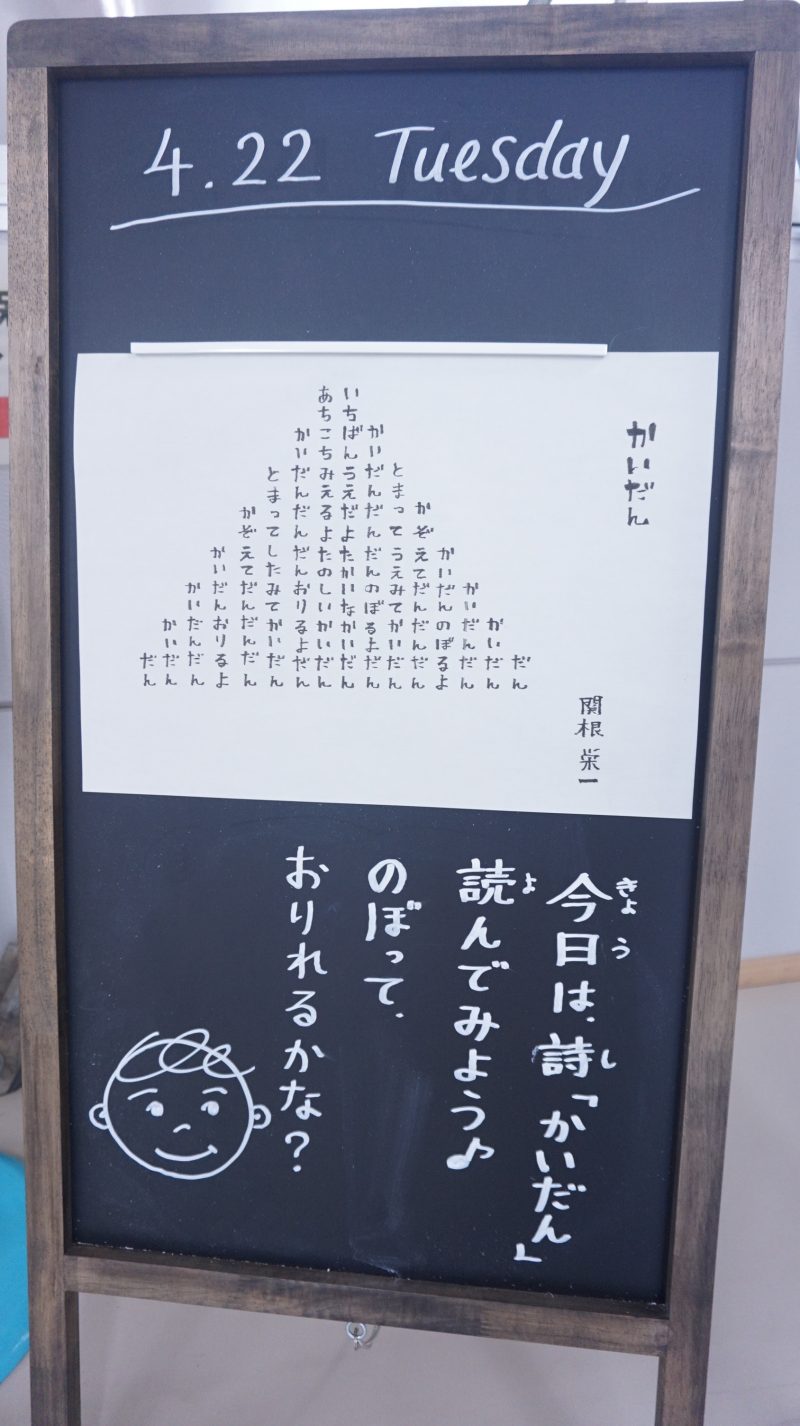 4.22 Tuesday
かいだん
関根 栄一
だん
かいだん
かいだんだん
かいだんのぼるよ
かぞえてだんだんだん
とまってうえみてかいだん
かいだんだんだんのぼるよだん
いちばんうえだよたかいなかいだん
あちこちみえるよたのしいかいだん
かいだんだんだんおりるよだん
とまってしたみてかいだん
かぞえてだんだんだん
かいだんおりるよ
かいだんだん
かいだん
だん
きょう し
今日は、詩「かいだん」
よ
読んでみよう♪
のぼって、
おりれるかな？